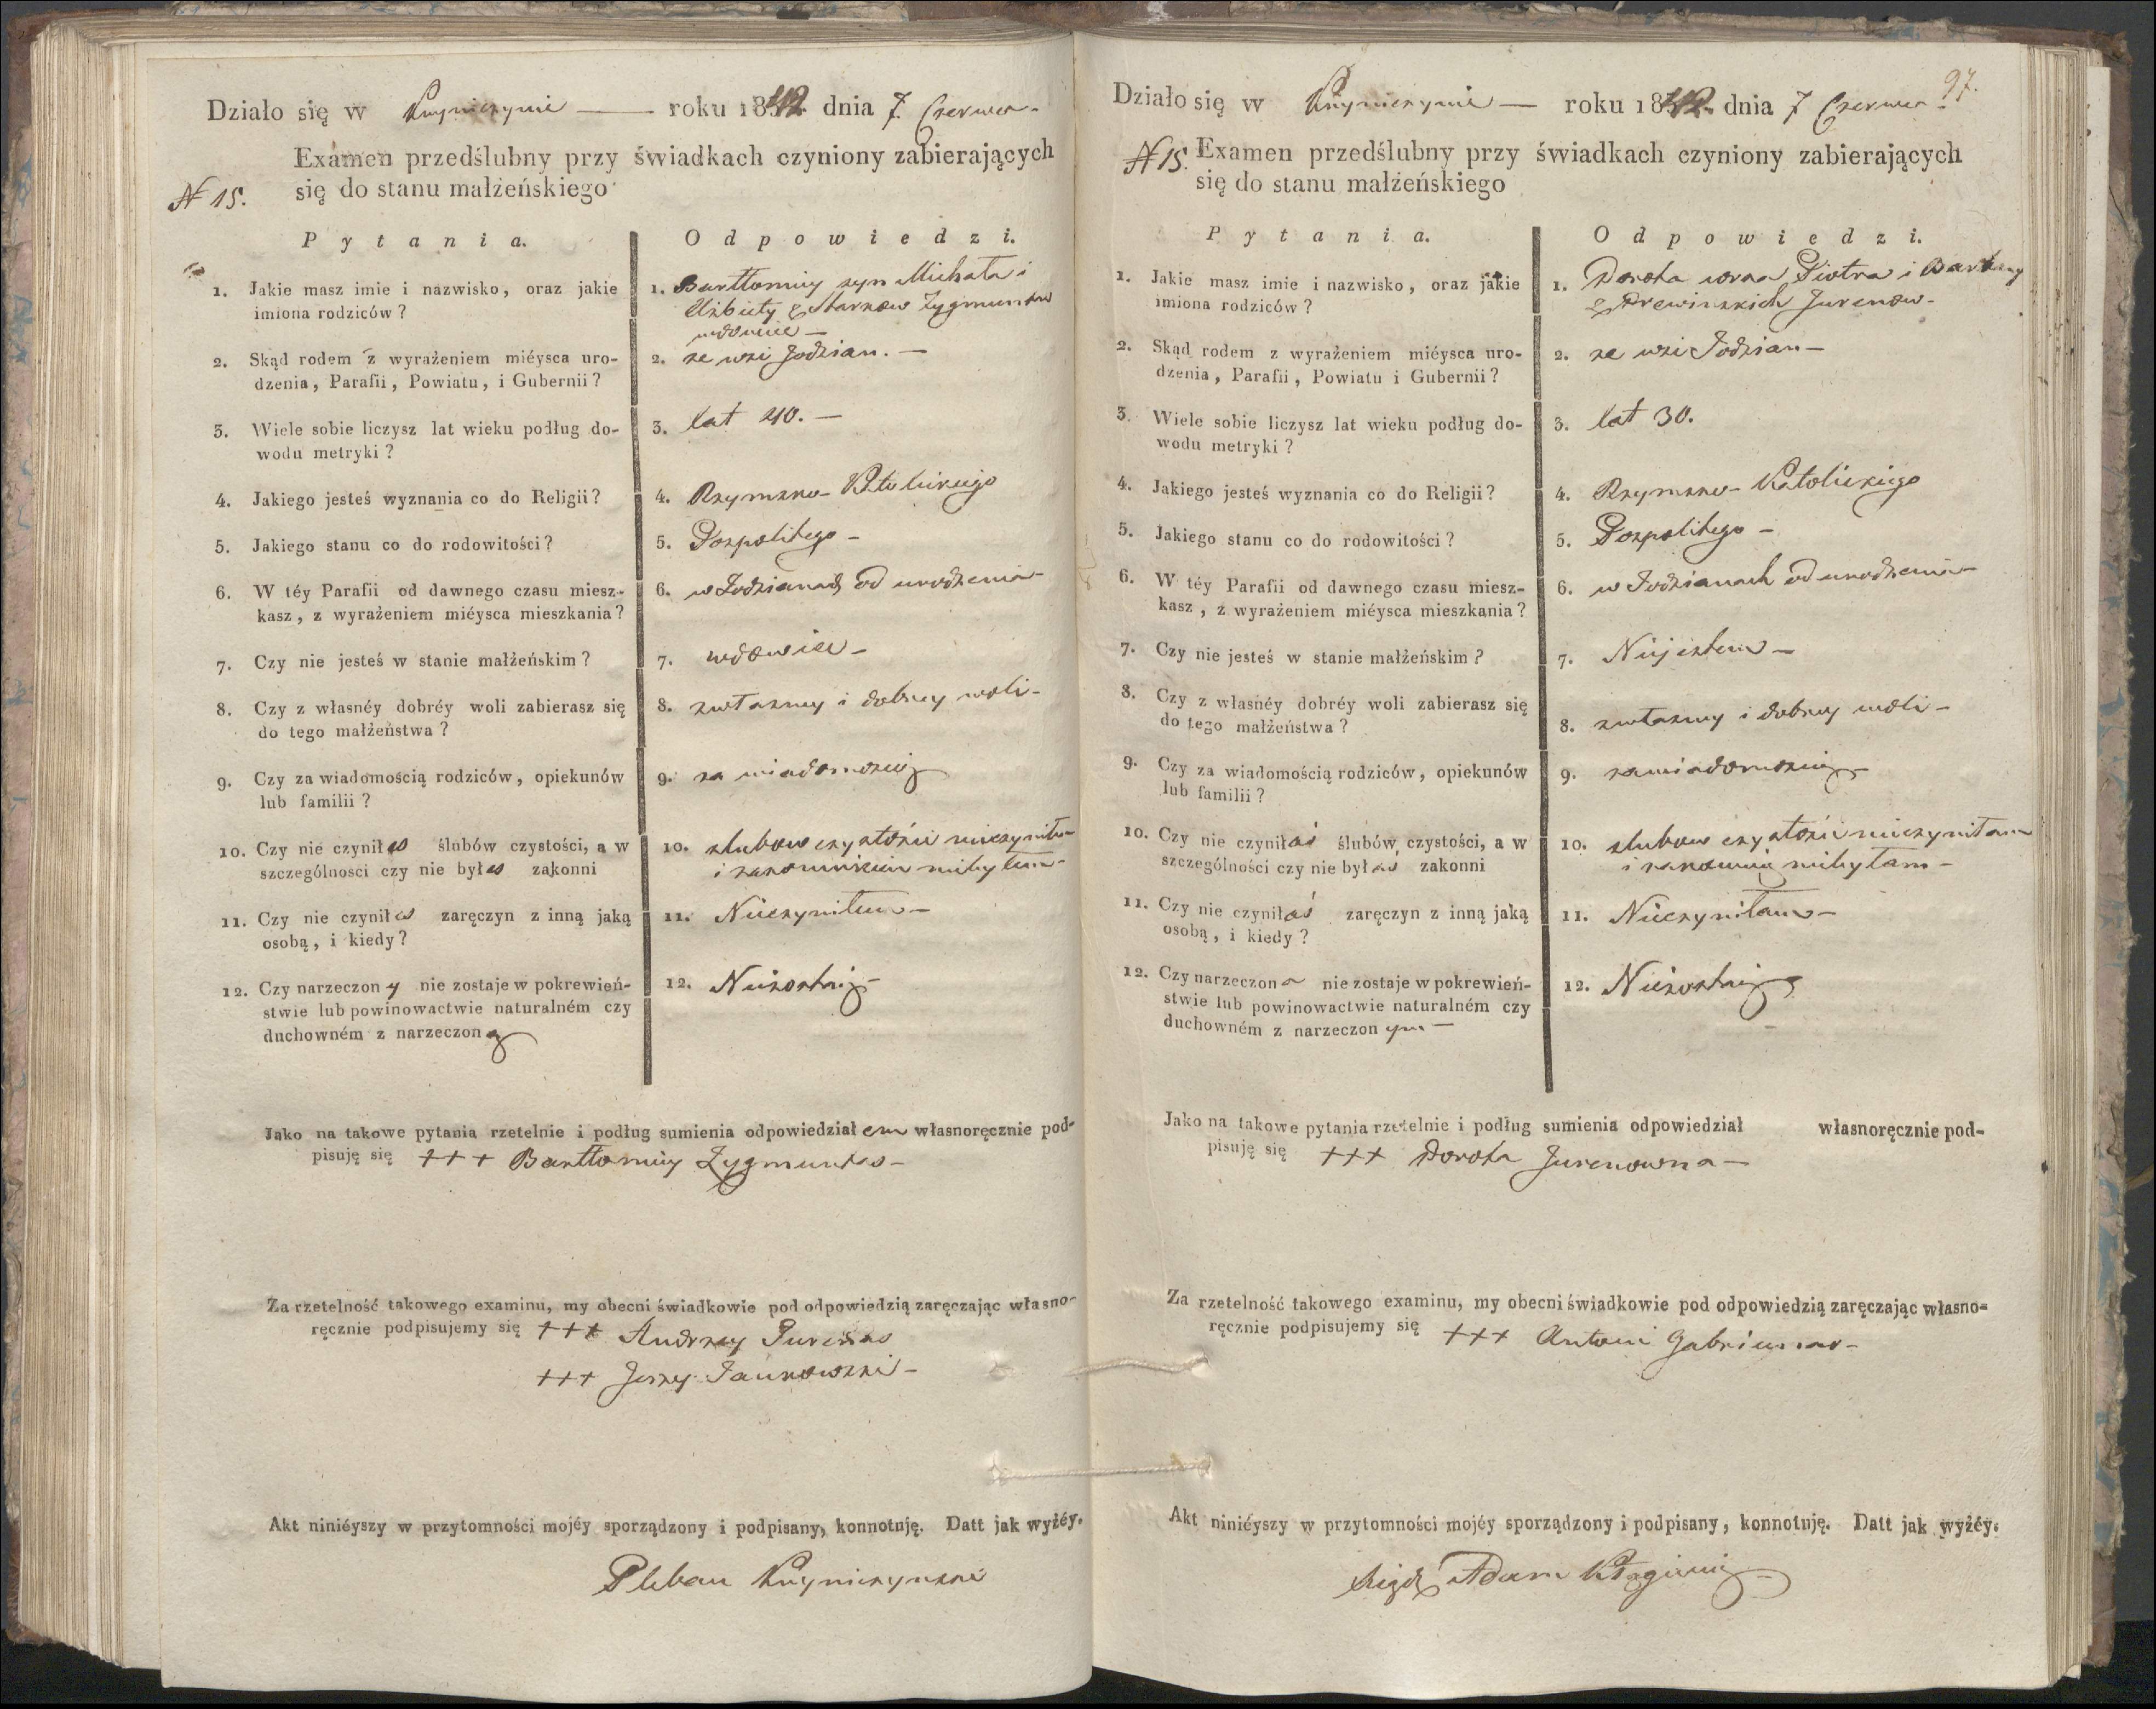 Działo się w Knyniczynie — roku 1842. dnia 7 Czerwca
Examen przedślubny przy świadkach czyniony zabierających
się do stanu małżeńskiego
N 15.
Pytania.
Odpowiedzi.
1. Jakie masz imie i nazwisko, oraz jakie
imiona rodziców?
1. Bartłomiey syn Michała i
Elżbiety z Starkow Zygmuntow
wdowiec —
2. Skąd rodem z wyrażeniem miéysca uro-
dzenia, Parafii, Powiatu, i Gubernii?
2. ze wsi Jodzian. —
3. Wiele sobie liczysz lat wieku podług do-
wodu metryki?
3. lat 40. —
4. Jakiego jesteś wyznania co do Religii?
4. Rzymsko-Katolickiego
5. Jakiego stanu co do rodowitości?
5. Pospolitego —
6. W téy Parafii od dawnego czasu miesz-
kasz, z wyrażeniem miéysca mieszkania?
6. w Jodzianach od urodzenia —
7. Czy nie jesteś w stanie małżeńskim?
7. wdowiec —
8. Czy z własnéy dobréy woli zabierasz się
do tego małżeństwa?
8. zwłasney i dobrey woli —
9. Czy za wiadomością rodziców, opiekunów
lub familii?
9. za wiadomością
10. Czy nie czyniłes ślubów czystości, a w
szczególności czy nie byłes zakonni
10. slubow czystości nieczyniłem
i zakonnikiem niebyłem —
11. Czy nie czyniłes zaręczyn z inną jaką
osobą, i kiedy?
11. Nieczyniłem —
12. Czy narzeczony nie zostaje w pokrewień-
stwie lub powinowactwie naturalném czy
duchowném z narzeczoną
12. Niezostaię
Jako na takowe pytania rzetelnie i podług sumienia odpowiedziałem własnoręcznie pod-
pisuję się +++ Bartłomiey Zygmuntas —
Za rzetelność takowego examinu, my obecni świadkowie pod odpowiedzią zaręczając własno-
ręcznie podpisujemy się +++ Andrzey
+++ Jerzy Jankowski —
Akt niniéyszy w przytomności mojéy sporządzony i podpisany, konnotuję. Datt jak wyżéy.
Pleban Knyniczynski
97.
Działo się w Knyniczynie — roku 1842. dnia 7 Czerwca
N 15. Examen przedślubny przy świadkach czyniony zabierających
się do stanu małżeńskiego
Pytania.
Odpowiedzi.
1. Jakie masz imie i nazwisko, oraz jakie
imiona rodziców?
1. Dorota Piotra i Barbary
z Drewinskich Jurenow —
2. Skąd rodem z wyrażeniem miéysca uro-
dzenia, Parafii, Powiatu i Gubernii?
2. ze wsi Jodzian —
3. Wiele sobie liczysz lat wieku podług do-
wodu metryki?
3. lat 30.
4. Jakiego jesteś wyznania co do Religii?
4. Rzymsko-Katolickiego
5. Jakiego stanu co do rodowitości?
5. Pospolitego —
6. W téy Parafii od dawnego czasu miesz-
kasz, z wyrażeniem miéysca mieszkania?
6. w Jodzianach od urodzenia —
7. Czy nie jesteś w stanie małżeńskim?
7. Niejestem —
8. Czy z własnéy dobréy woli zabierasz się
do tego małżeństwa?
8. zwłasney i dobrey woli —
9. Czy za wiadomością rodziców, opiekunów
lub familii?
9. zawiadomością
10. Czy nie czyniłaś ślubów czystości, a w
szczególności czy nie byłaś zakonni
10. slubow czystości nieczyniłam
i zakonnicą niebyłam —
11. Czy nie czyniłaś zaręczyn z inną jaką
osobą, i kiedy?
11. Nieczyniłam —
12. Czy narzeczona nie zostaje w pokrewień-
stwie lub powinowactwie naturalném czy
duchowném z narzeczonym —
12. Niezostaię
Jako na takowe pytania rzetelnie i podług sumienia odpowiedział własnoręcznie pod-
pisuję się +++ Dorota Jurenowna —
Za rzetelność takowego examinu, my obecni świadkowie pod odpowiedzią zaręczając własno-
ręcznie podpisujemy się +++ Antoni
Akt niniéyszy w przytomności mojéy sporządzony i podpisany, konnotuję. Datt jak wyżéy.
Xiądz Adam